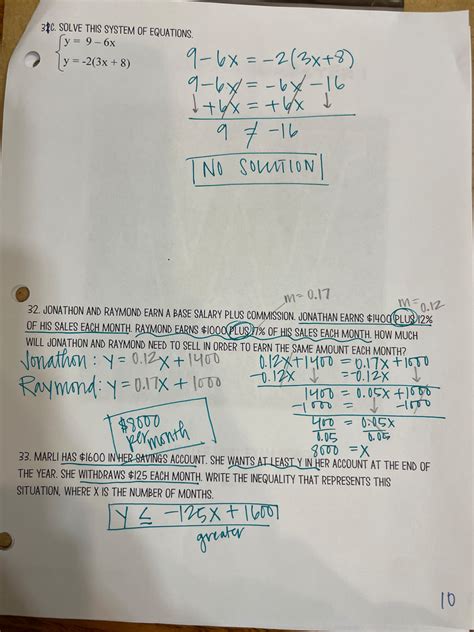 31C. SOLVE THIS SYSTEM OF EQUATIONS.
y = 9 – 6x
y = -2(3x + 8)
9-6x = -2(3x+8)
9-6x = -6x -16
↓ +6x = +6x ↓
9 ≠ -16
NO SOLUTION
m=0.17
m=0.12
32. JONATHON AND RAYMOND EARN A BASE SALARY PLUS COMMISSION. JONATHAN EARNS $1400 PLUS 12%
OF HIS SALES EACH MONTH. RAYMOND EARNS $1000 PLUS 17% OF HIS SALES EACH MONTH. HOW MUCH
WILL JONATHON AND RAYMOND NEED TO SELL IN ORDER TO EARN THE SAME AMOUNT EACH MONTH?
Jonathon: y = 0.12x + 1400
Raymond: y = 0.17x + 1000
0.12x+1400 = 0.17x+1000
-0.12x ↓ = -0.12x ↓
1400 = 0.05x +1000
-1000 = ↓ -1000
400 = 0.05x
0.05 0.05
8000 = x
$8000
per month
33. MARLI HAS $1600 IN HER SAVINGS ACCOUNT. SHE WANTS AT LEAST Y IN HER ACCOUNT AT THE END OF
THE YEAR. SHE WITHDRAWS $125 EACH MONTH. WRITE THE INEQUALITY THAT REPRESENTS THIS
SITUATION, WHERE X IS THE NUMBER OF MONTHS.
y ≤ -125x + 1600
greater
10